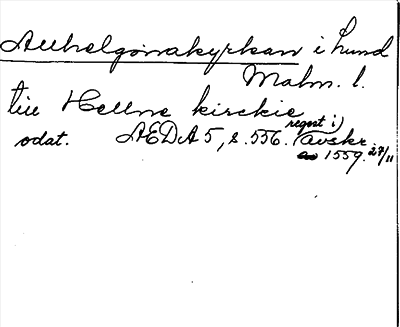 Allhelgonakyrkan i Lund
Malm. l.
till Hellne kirckie
odat. AEDA 5, s. 556. (regest i)
avskr.
1559 27/11